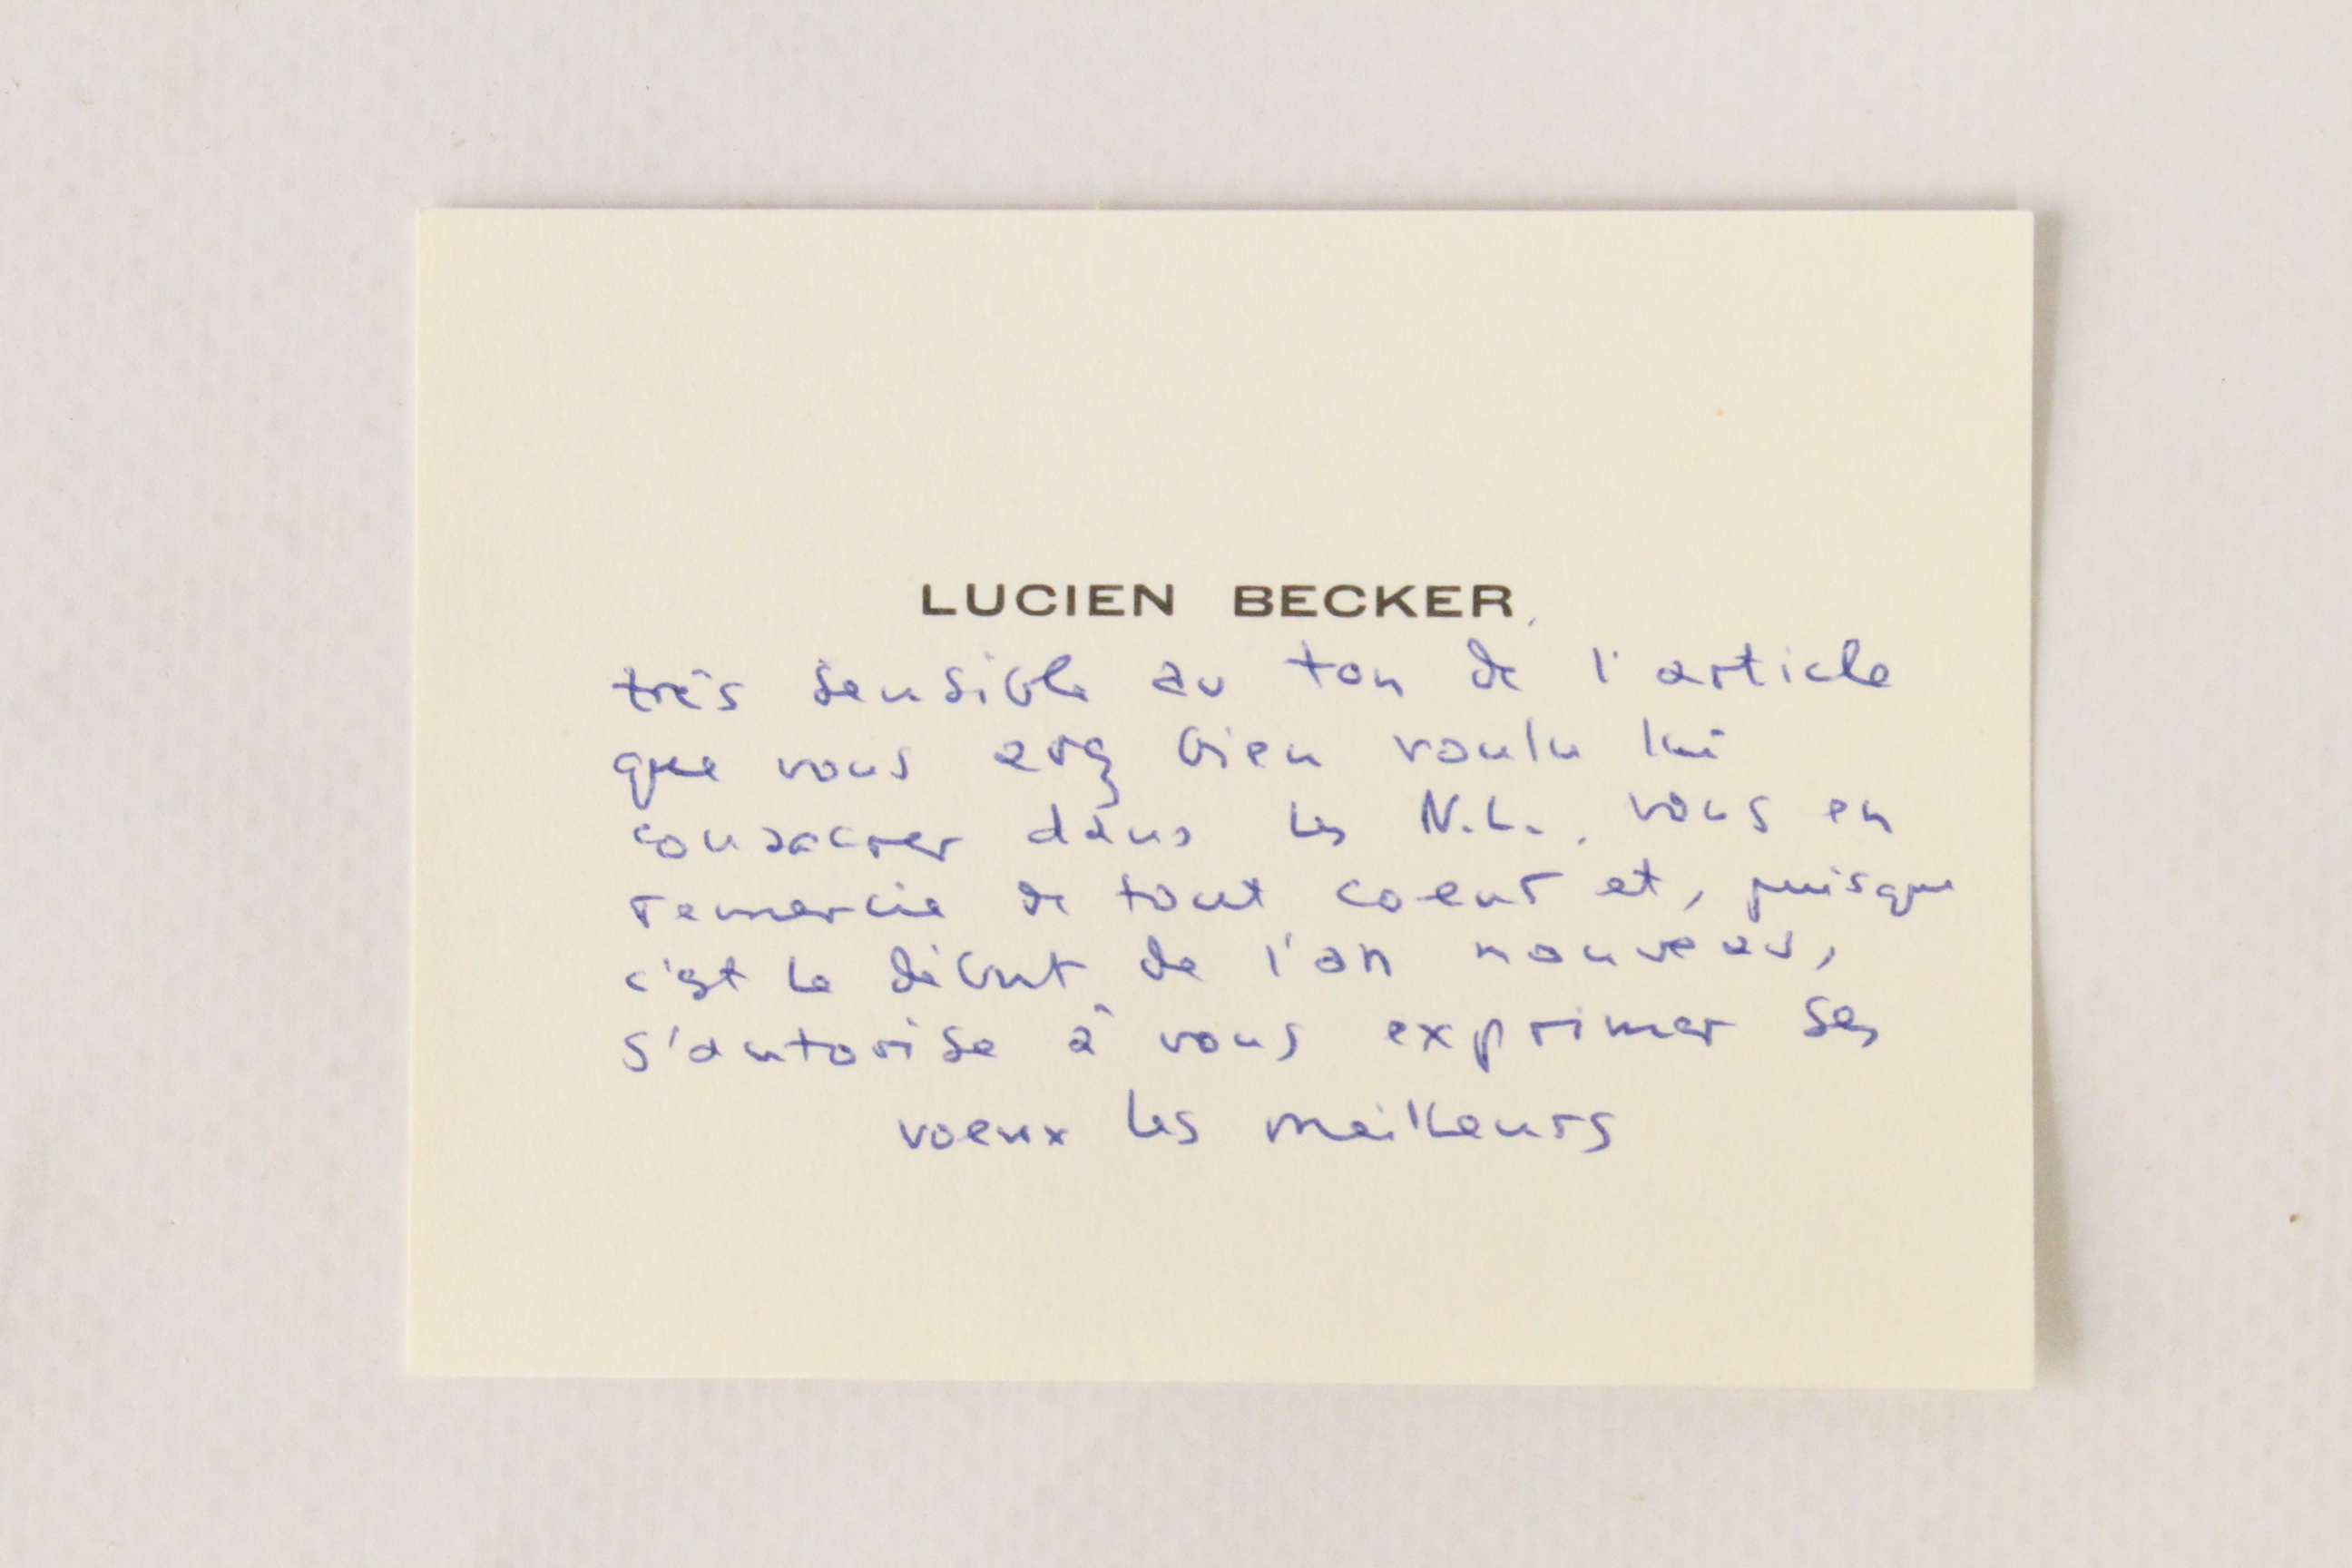 LUCIEN BECKER,
très sensible au ton de l'article
que vous avez bien voulu lui
consacrer dans les N.L., vous en
remercie de tout coeur et, puisque
c'est le début de l'an nouveau,
s'autorise à vous exprimer ses
voeux les meilleurs